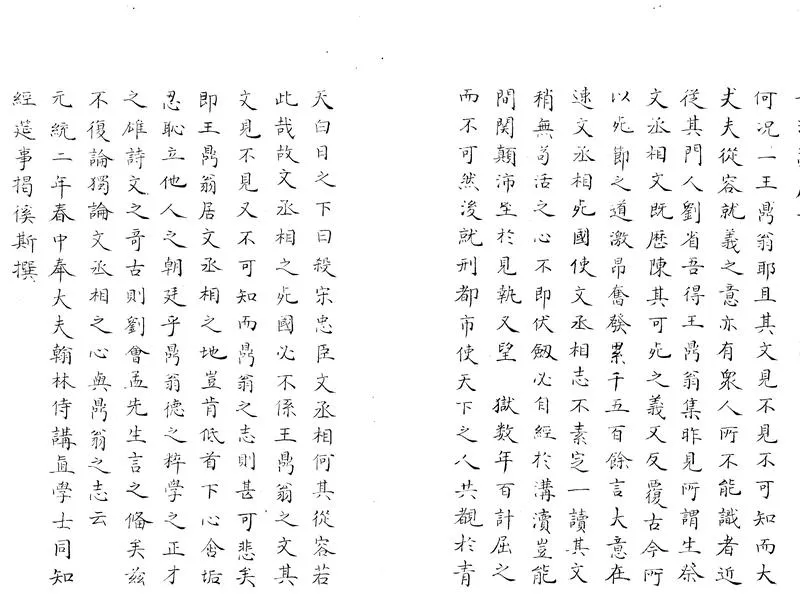 何況一王鼎翁耶且其文見不見不可知而大
丈夫從容就義之意亦有衆人所不能識者近
從其門人劉省吾得王鼎翁集昨見所謂生祭
文丞相文既歷陳其可死之義又反覆古今所
以死節之道激昂奮發累千五百餘言大意在
速文丞相死國使文丞相志不素定一讀其文
稍無苟活之心不即伏劔必自經於溝瀆豈能
間関顛沛至於見執又坐獄數年百計屈之
而不可然後就刑都市使天下之人共觀於青
天白日之下曰殺宋忠臣文丞相何其從容若
此哉故文丞相之死國必不係王鼎翁之文其
文見不見又不可知而鼎翁之志則甚可悲矣
即王鼎翁居文丞相之地豈肯低首下心含垢
忍恥立他人之朝廷乎鼎翁德之粹學之正才
之雄詩文之奇古則劉會孟先生言之備矣兹
不復論獨論文丞相之心與鼎翁之志云
元統二年春中奉大夫翰林侍講直學士同知
經莚事揭傒斯撰